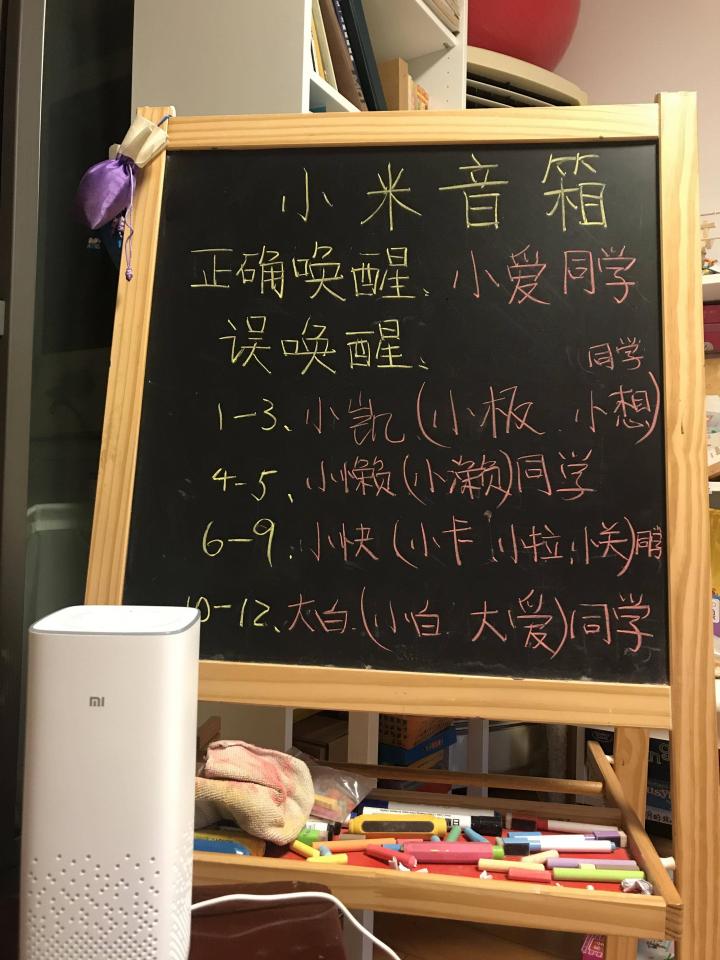 小米音箱
正确唤醒、小爱同学
误唤醒、
同学
1-3、小凯(小板、小想)
4-5、小懒(小濑)同学
6-9、小快(小卡、小拉、小关)同学
10-12、大白、(小白、大爱)同学
mi